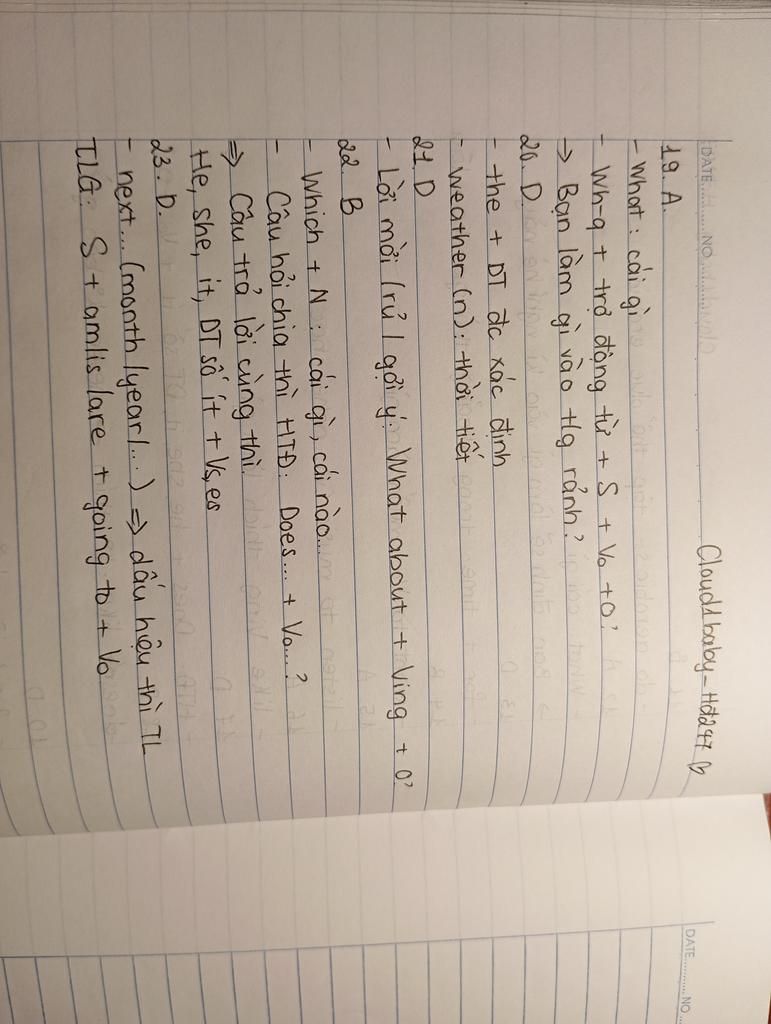 Cloud1baby - Hđ247
DATE.......... NO..........
19. A.
- What: cái gì
- Wh-q + trợ động từ + S + Vo + O?
→ Bạn làm gì vào t/g rảnh?
20. D
- the + DT đc xác định
- weather (n): thời tiết
21. D
- Lời mời / rủ / gợi ý: What about + Ving + O?
22. B
- Which + N: cái gì, cái nào...
- Câu hỏi chia thì HTĐ: Does... + Vo...?
⇒ Câu trả lời cùng thì.
He, she, it, DT số ít + Vs,es
23. D.
- next... (month / year /...) ⇒ dấu hiệu thì TL
TLG: S + am/is/are + going to + Vo
DATE.......... NO.....